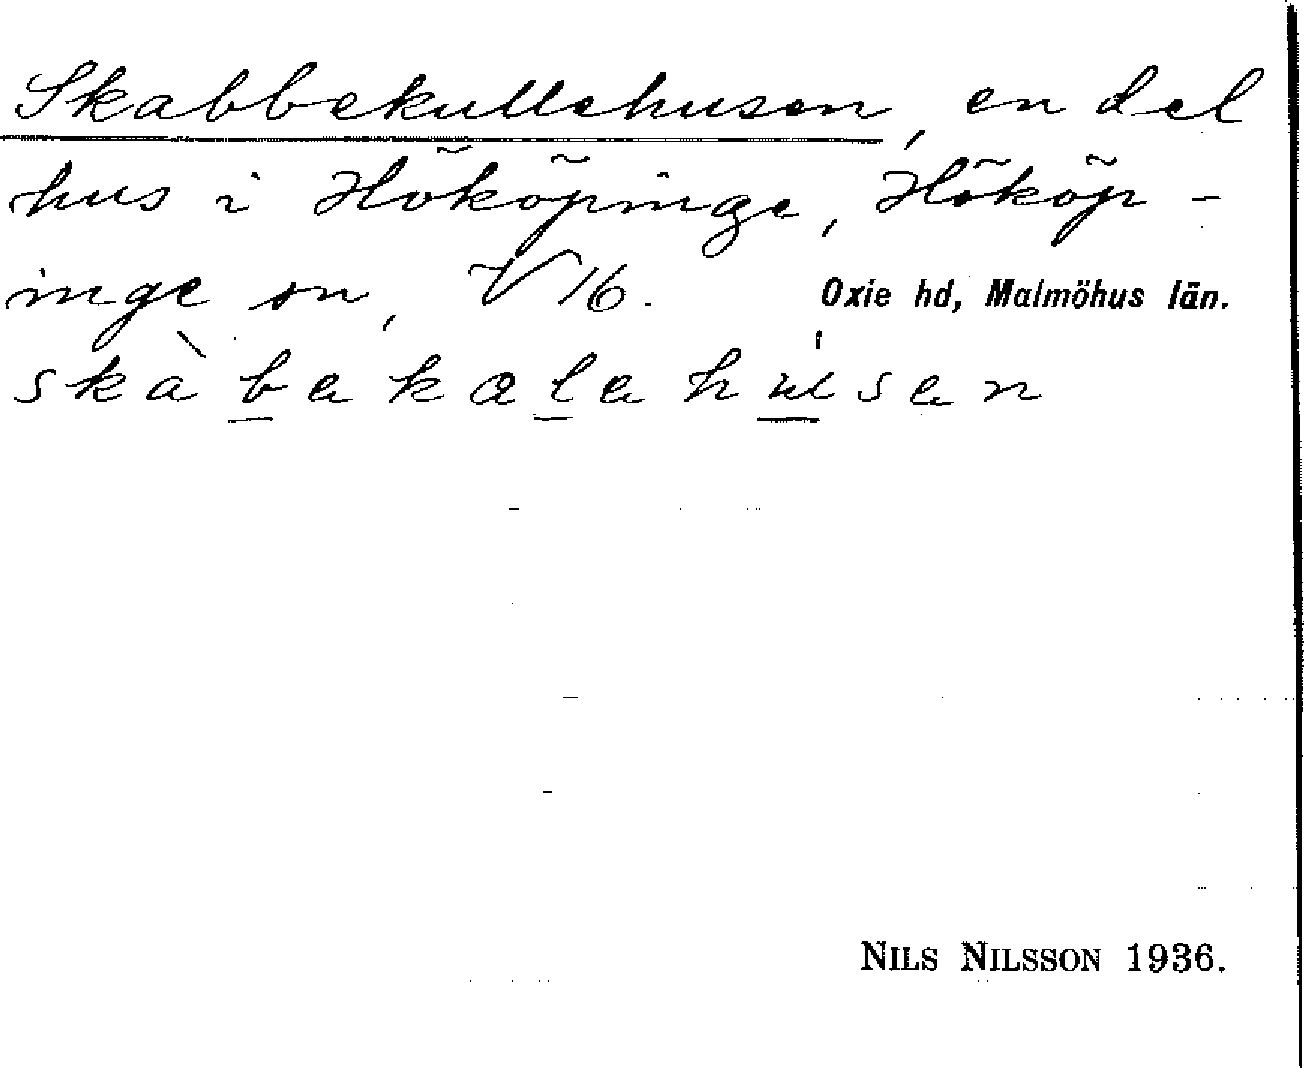 Skabbekullehusen, en del
hus i Hököpinge, Hököp-
inge sn, V 16. Oxie hd, Malmöhus län.
skàbekalehusen
NILS NILSSON 1936.